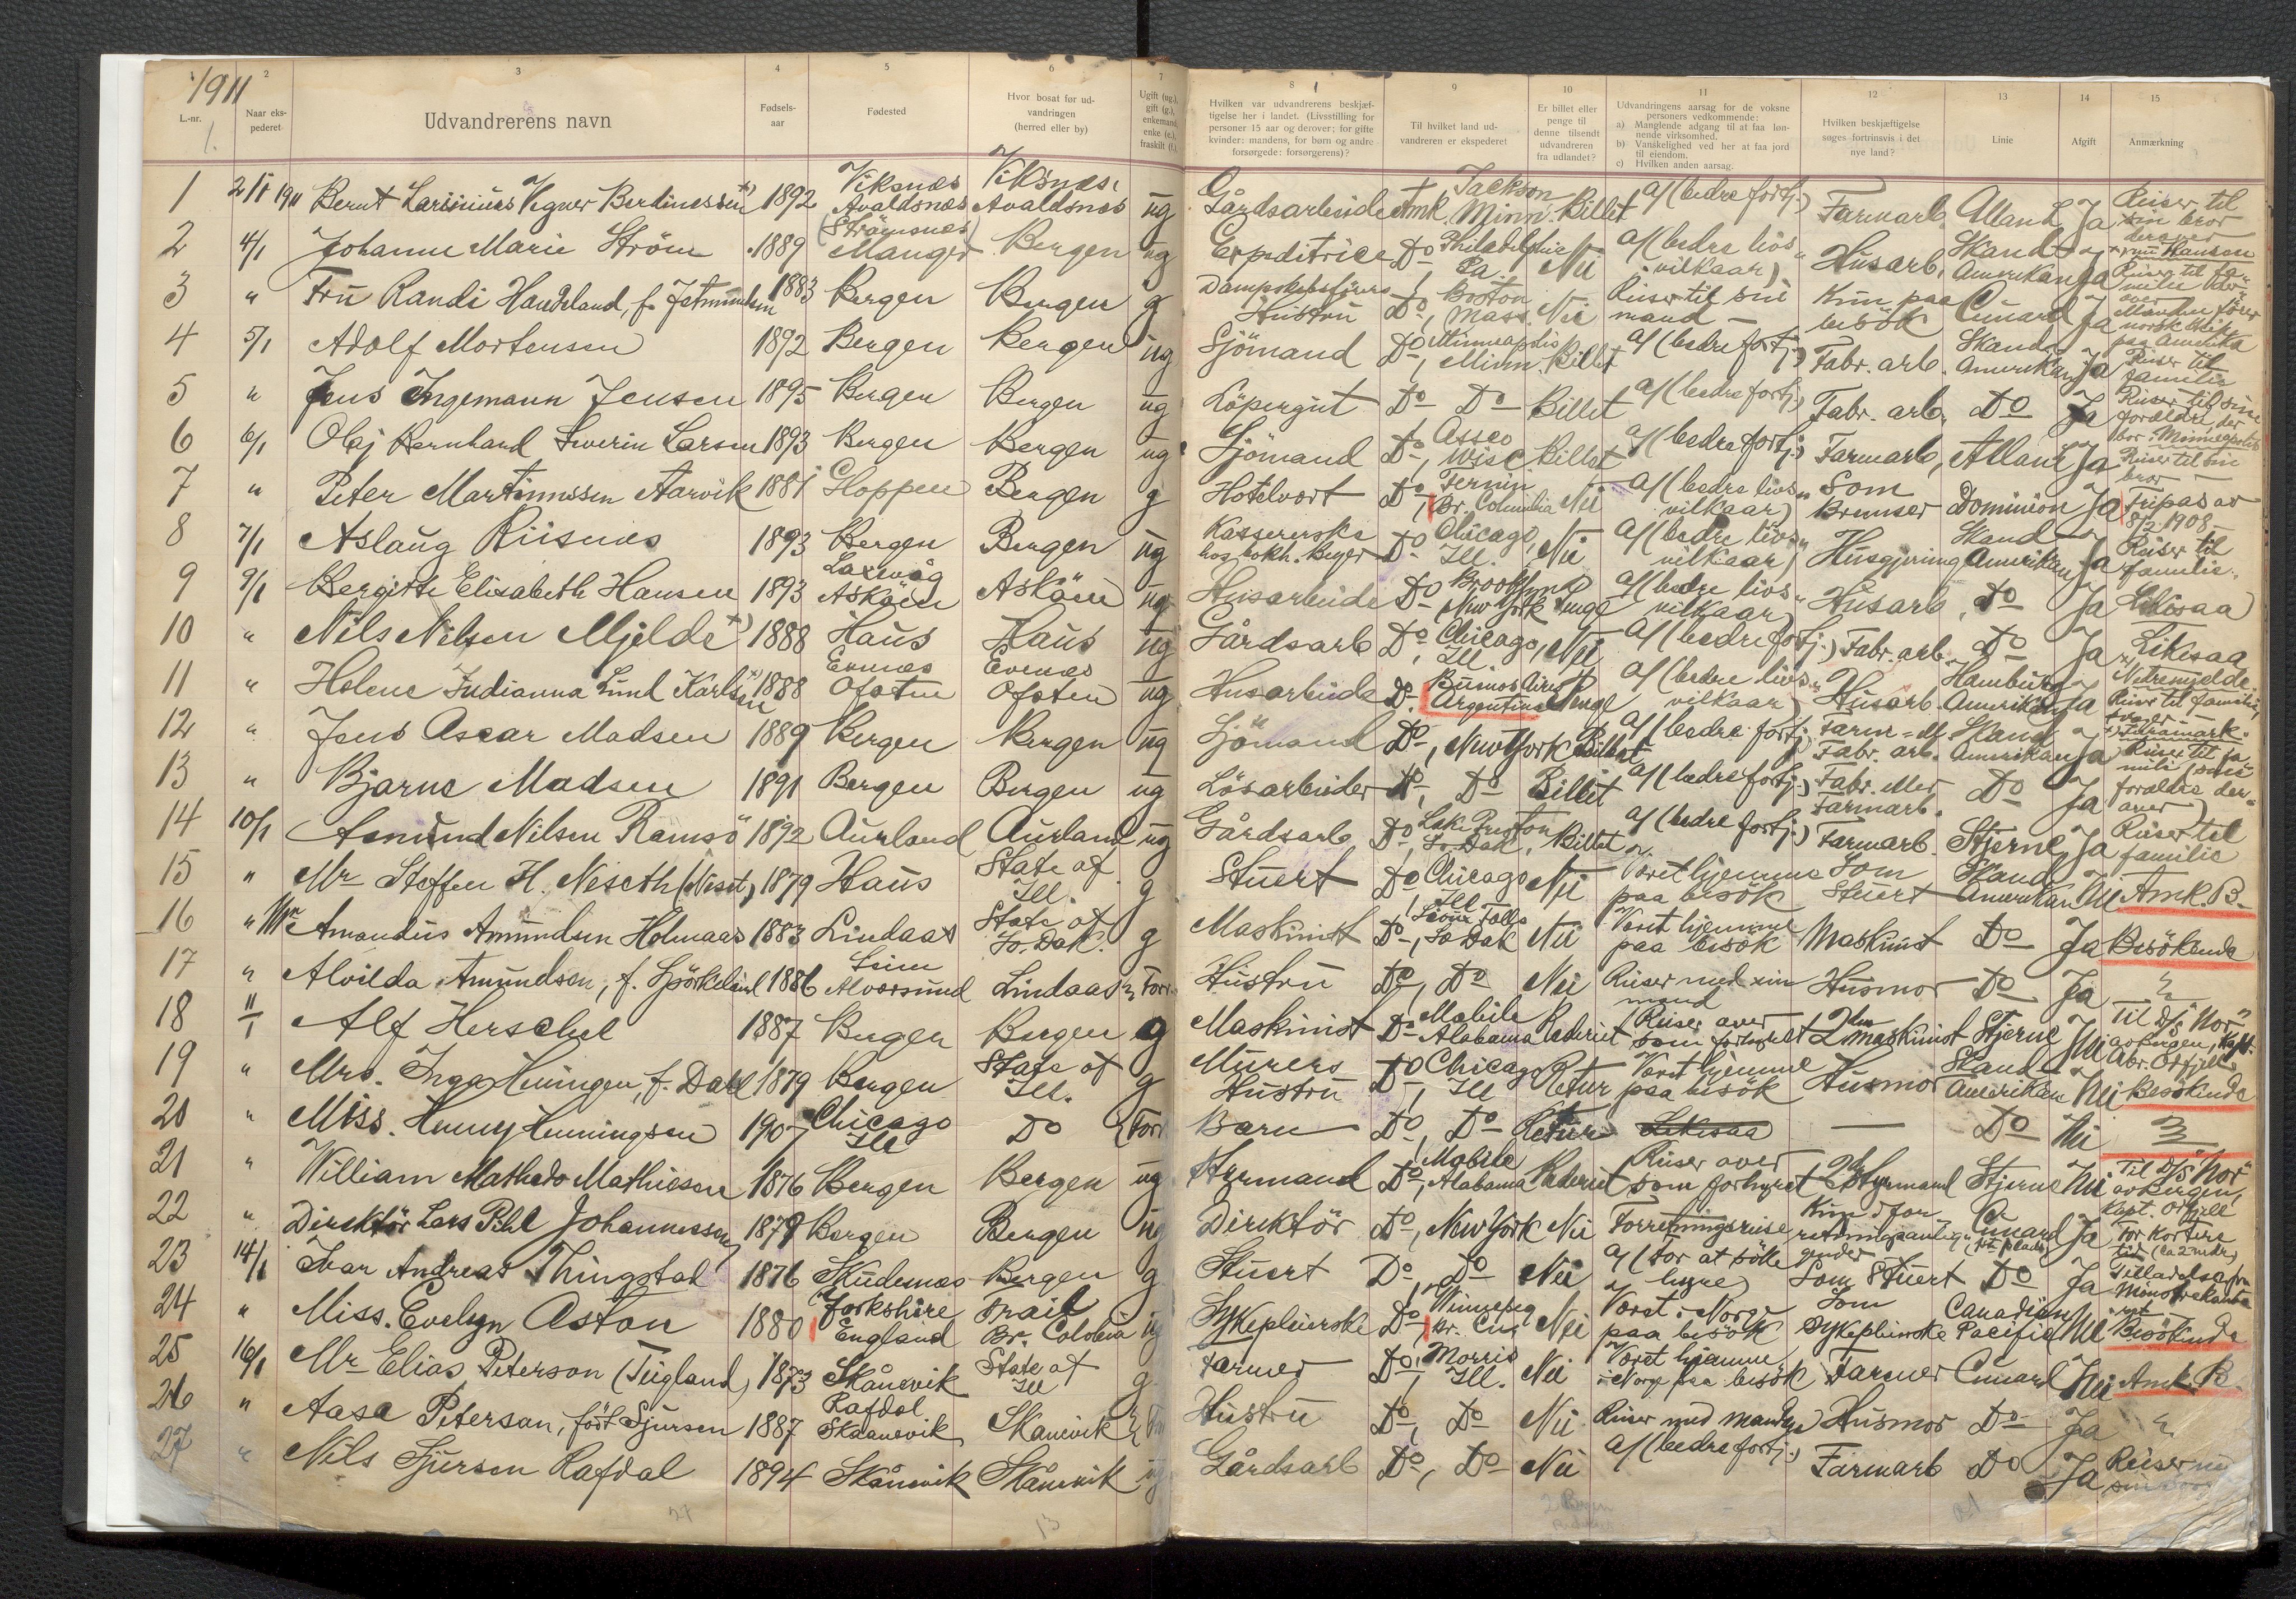 1911
1.
L.-nr.
2
Naar eks-
pederet
3
Udvandrerens navn
4
Fødsels-
aar
5
Fødested
6
Hvor bosat før ud-
vandringen
(herred eller by)
7
Ugift (ug.),
gift (g.),
enkemand,
enke (e.),
fraskilt (f.)
8
Hvilken var udvandrerens beskjæf-
tigelse her i landet. (Livsstilling for
personer 15 aar og derover; for gifte
kvinder: mandens, for børn og andre
forsørgede: forsørgerens)?
9
Til hvilket land ud-
vandreren er ekspederet
10
Er billet eller
penge til
denne tilsendt
udvandreren
fra udlandet?
11
Udvandringens aarsag for de voksne
personers vedkommende:
a) Manglende adgang til at faa løn-
nende virksomhed.
b) Vanskelighed ved her at faa jord
til eiendom.
c) Hvilken anden aarsag.
12
Hvilken beskjæftigelse
søges fortrinsvis i det
nye land?
13
Linie
14
Afgift
15
Anmærkning
1 2/1 1911 Bernt Vegner Berdinessen 1892 Viksnæs Avaldsnæs Viksnæs, Avaldsnæs ug Gårdsarbeide Amk. Jackson Minn. Billet a/ (bedre fortj.) Farmarb. Allan L Ja Reiser til sin bror derover
2 4/1 Johanne Marie Ström 1889 (Strömsnes) Manger Bergen ug Expeditrice Do Philadelphia Pa. Nei a/ (bedre livsvilkaar) Husarb. Skand. Amerikan Ja Hansen Reiser til familie derover
3 " Fru Randi Haudeland, f. 1883 Bergen Bergen g Dampskibsförers Hustru Do, Boston Mass. Nei Reiser til sin mand – Kun paa besök Cunard Ja Manden förer norsk skib paa Amerika
4 5/1 Adolf Mortensen 1892 Bergen Bergen ug Sjömand Do, Minneapolis Minn. Billet a/ (bedre fortj.) Fabr. arb. Skand. Amerikan Ja Reiser til familie
5 " Jens Ingemann Jensen 1895 Bergen Bergen ug Löpergut Do Do Billet a/ (bedre fortj.) Fabr. arb. Do Ja Reiser til sine foreldre, der bor i Minneapolis
6 6/1 Olaf Bernhard Severin Larsen 1893 Bergen Bergen ug Sjömand Do, Asseo Wisc Billet a/ (bedre fortj.) Farmarb, Allan L Ja Reiser til sin bror
7 " Peter Martinussen Aarvik 1881 Gloppen Bergen g Hotelvert Do, Fernin Br. Columbia Nei a/ (bedre livsvilkaar) Som Bremser Dominion Ja Fripas av 8/2 1908.
8 7/1 Aslaug Riisnæs 1893 Bergen Bergen ug Kassererske hos bokh. Beyer Do Chicago, Ill. Nei a/ (bedre livsvilkaar) Husgjerning Skand. Amerikan Ja Reiser til familie.
9 9/1 Bergitte Elisabeth Hansen 1893 Laxevåg Asköen Asköen ug Husarbeide Do Brooklyn New York Penge a/ (bedre livsvilkaar) Husarb. Do Ja Likesaa
10 " Nils Nilsen Mjelde 1888 Haus Haus ug Gårdsarb Do Chicago, Ill. Nei a/ (bedre fortj.) Fabr. arb. Do Ja Likesaa Netremjelde
11 " Helene Indianna Lund Karlsen 1888 Evenæs Ofoten Evenæs Ofoten ug Husarbeide Do. Buenos Aires Argentina Penge a/ (bedre livsvilkaar) Husarb. Hamburg Amerikan Ja Reiser til familie
12 " Jens Oscar Madsen 1889 Bergen Bergen ug Sjömand Do, New York Billet a/ (bedre fortj.) Farm= el. Fabr. arb. Skand Amerikan Ja Reiser til familie (sine foreldre derover)
13 " Bjarne Madsen 1891 Bergen Bergen ug Lösarbeider Do, Do Billet a/ (bedre fortj.) Fabr. eller Farmarb. Do Ja
14 10/1 Asmund Nilsen Ramsö 1892 Aurland Aurland ug Gårdsarb Do, Lake Preston So. Dak. Billet a/ (bedre fortj.) Farmarb. Stjerne Ja Reiser til familie
15 " Mr Steffen H. Neseth (Neset) 1879 Haus State of Ill. g Stuert Do, Chicago Ill. Nei Været hjemme paa besök Som Stuert Skand Amerikan Nei Amk. B.
16 " Mr Amandus Amundsen Holmaas 1883 Lindaas State of So. Dak. g Maskinist Do, Sioux Falls So Dak Nei Været hjemme paa besök Maskinist Do Ja Besökende
17 " Alvilda Amundsen, f. 1886 Seim Alversund Lindaas Forr. Hustru Do, Do Nei Reiser med sin mand Husmor Do Ja "
18 11/1 Alf Herschel 1887 Bergen Bergen g Maskinist Do Mobile Alabama Rederiet Reiser over som forhyret 2den maskinist Stjerne Nei Til D/S "Nor" av Bergen, kapt. Abr. Odfjell
19 " Mrs. Inga Heningen, f. Dahl 1879 Bergen State of Ill. g Murers Hustru Do, Chicago Ill Retur Været hjemme paa besök Husmor Skand. Amerikan Nei Besökende
20 " Miss. Henny Henningsen 1907 Chicago Ill Do Forr Barn Do, Do Retur Likesaa — Do Nei "
21 " William Mathisen 1876 Bergen Bergen ug Styrmand Do, Mobile Alabama Rederiet Reiser over som forhyret 2den Styrmand Stjerne Nei Til D/S "Nor" av Bergen, Kapt. Odfjell
22 " Direktör Lars Pihl Johannessen 1879 Bergen Bergen ug Direktör Do, New York Nei Forretningsreise Kun i forretningsanliggender Cunard Ja For kortere tid (ca 2 mdr)
23 14/1 Ivar Andreas Thingstad 1876 Skudenæs Bergen g Stuert Do, Do Nei a/ (For at söke hyre) Som Stuert Do Ja Tilladelse fra Mönstrekontoret
24 " Miss. Evelyn Aston 1880 Yorkshire England Trail Br. Colobia ug Sykepleierske Do, Winnepeg Nei Været i Norge paa besök Som Sykepleierske Canadian Pacific Nei Besökende
25 16/1 Mr Elias Peterson (Teigland) 1873 Skånevik State of Ill g. Farmer Do, Morris Ill. Nei Været hjemme i Norge paa besök Farmer Cunard Nei Amk. B.
26 " Aasa Peterson, föt Sjursen 1887 Rafdal Skaanevik Skånevik Hustru Do, Do Nei Reiser med manden Husmor Do Ja "
27 " Nils Sjursen Rafdal 1894 Skånevik Skånevik ug Gårdsarb Do, Do Nei a/ (bedre fortj.) Farmarb Do Ja Reiser
27
13